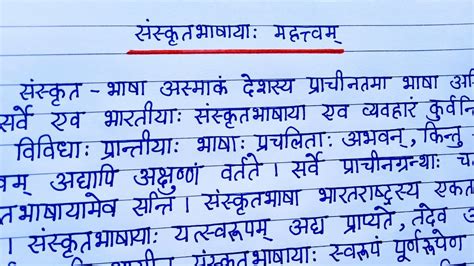 संस्कृतभाषायाः महत्त्वम्
संस्कृत - भाषा अस्माकं देशस्य प्राचीनतमा भाषा
सर्वे एव भारतीयाः संस्कृतभाषाया एव व्यवहारं
विविधाः प्रान्तीयाः भाषाः प्रचलिताः अभवन्, किन्तु
अद्यापि अक्षुण्णं वर्तते । सर्वे प्राचीनग्रन्थाः
सन्ति । संस्कृतभाषा भारतराष्ट्रस्य
। संस्कृतभाषायाः यत्स्वरूपम् अद्य प्राप्यते, तदेव
संस्कृतभाषायाः स्वरूपं पूर्णरूपेण